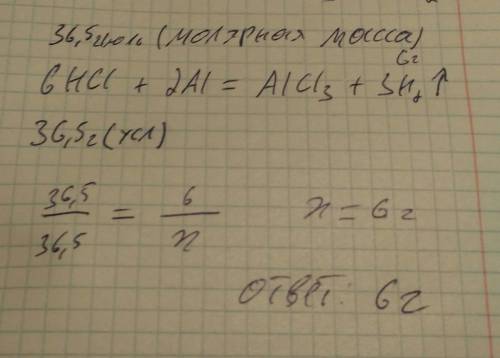 36,5 г/моль (молярная масса)
6г
6HCl + 2Al = AlCl₃ + 3H₂ ↑
36,5 г (усл)
36,5/36,5 = 6/x x = 6г
Ответ: 6г